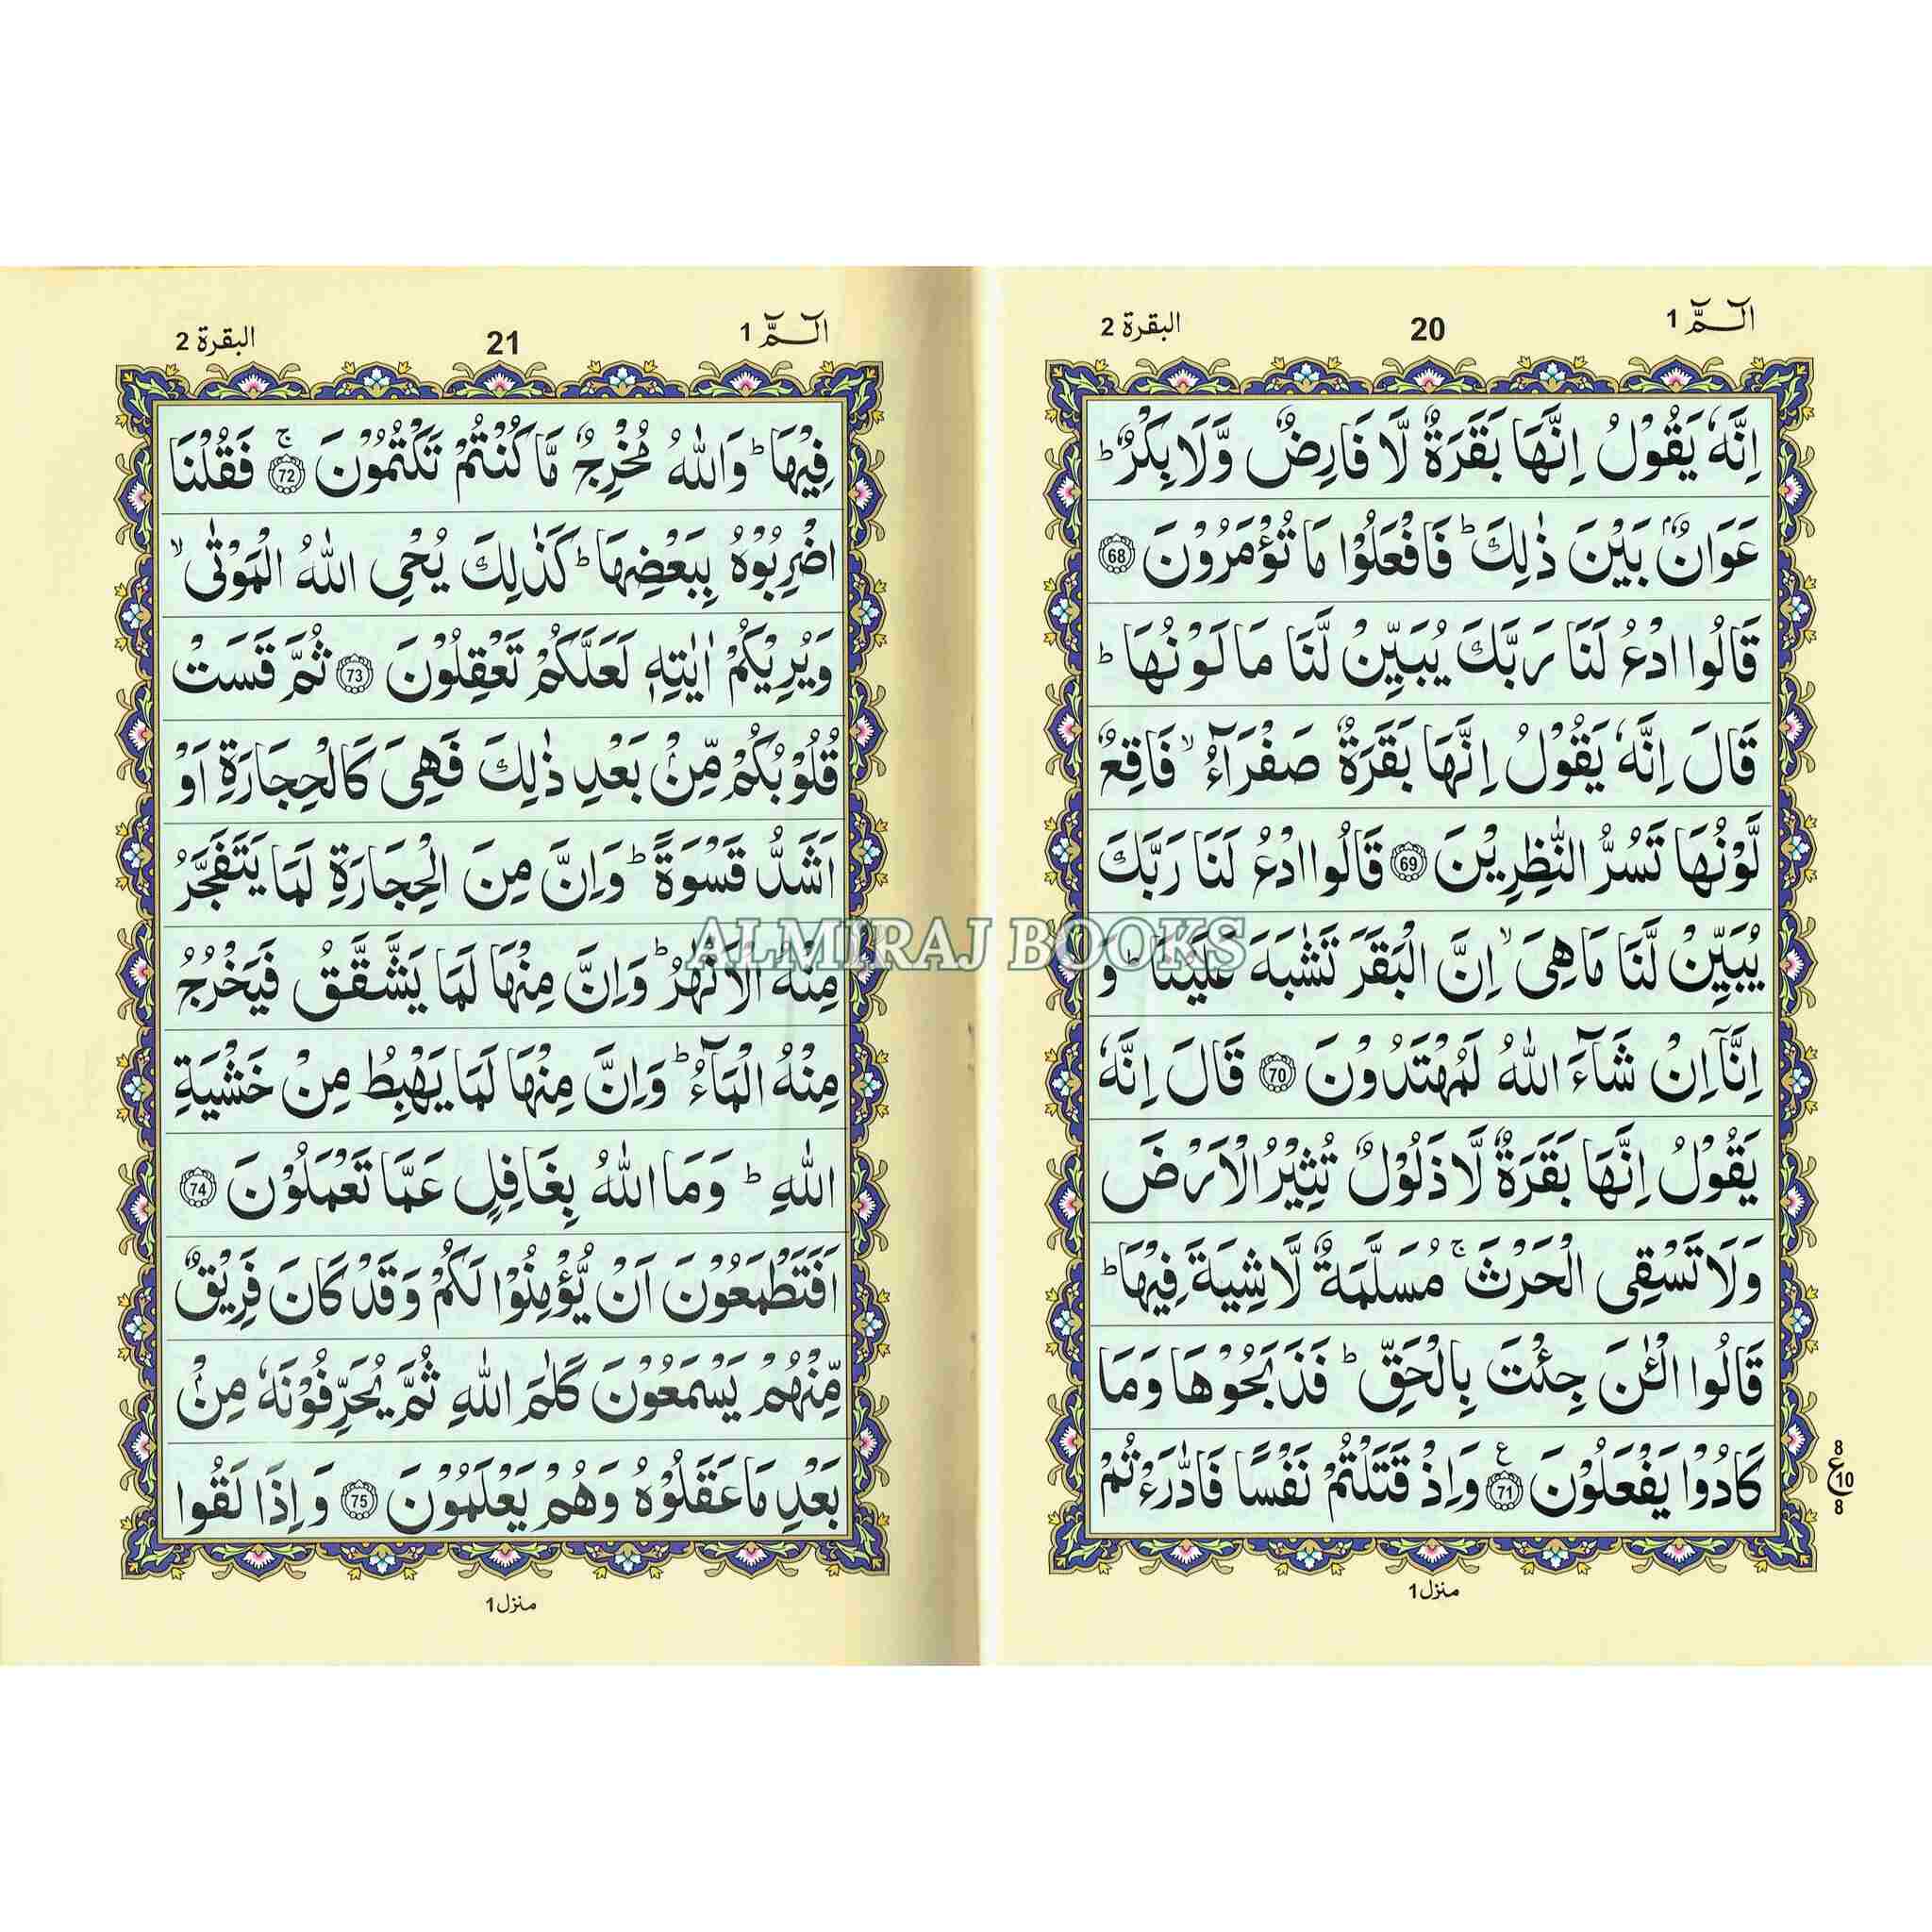 الٓـمّٓ 1
20
البقرة 2
اِنَّهٗ يَقُوْلُ اِنَّهَا بَقَرَةٌ لَّا فَارِضٌ وَّلَا بِكْرٌ ؕ
عَوَانٌۢ بَيْنَ ذٰلِكَ ؕ فَافْعَلُوْا مَا تُؤْمَرُوْنَ 68
قَالُوا ادْعُ لَنَا رَبَّكَ يُبَيِّنْ لَّنَا مَا لَوْنُهَا ؕ
قَالَ اِنَّهٗ يَقُوْلُ اِنَّهَا بَقَرَةٌ صَفْرَآءُ ۙ فَاقِعٌ
لَّوْنُهَا تَسُرُّ النّٰظِرِيْنَ 69 قَالُوا ادْعُ لَنَا رَبَّكَ
يُبَيِّنْ لَّنَا مَا هِيَ ۙ اِنَّ الْبَقَرَ تَشٰبَهَ عَلَيْنَا ؕ وَ
اِنَّاۤ اِنْ شَآءَ اللّٰهُ لَمُهْتَدُوْنَ 70 قَالَ اِنَّهٗ
يَقُوْلُ اِنَّهَا بَقَرَةٌ لَّا ذَلُوْلٌ تُثِيْرُ الْاَرْضَ
وَلَا تَسْقِى الْحَرْثَ ۚ مُسَلَّمَةٌ لَّا شِيَةَ فِيْهَا ؕ
قَالُوا الْـٰٔنَ جِئْتَ بِالْحَقِّ ؕ فَذَبَحُوْهَا وَمَا
كَادُوْا يَفْعَلُوْنَ 71 ع وَاِذْ قَتَلْتُمْ نَفْسًا فَادّٰرَءْتُمْ
8
ع 10
8
منزل 1
الٓـمّٓ 1
21
البقرة 2
فِيْهَا ؕ وَاللّٰهُ مُخْرِجٌ مَّا كُنْتُمْ تَكْتُمُوْنَ 72 ۚ فَقُلْنَا
اضْرِبُوْهُ بِبَعْضِهَا ؕ كَذٰلِكَ يُحْىِ اللّٰهُ الْمَوْتٰى ۙ
وَيُرِيْكُمْ اٰيٰتِهٖ لَعَلَّكُمْ تَعْقِلُوْنَ 73 ثُمَّ قَسَتْ
قُلُوْبُكُمْ مِّنْۢ بَعْدِ ذٰلِكَ فَهِيَ كَالْحِجَارَةِ اَوْ
اَشَدُّ قَسْوَةً ؕ وَاِنَّ مِنَ الْحِجَارَةِ لَمَا يَتَفَجَّرُ
مِنْهُ الْاَنْهٰرُ ؕ وَاِنَّ مِنْهَا لَمَا يَشَّقَّقُ فَيَخْرُجُ
مِنْهُ الْمَآءُ ؕ وَاِنَّ مِنْهَا لَمَا يَهْبِطُ مِنْ خَشْيَةِ
اللّٰهِ ؕ وَمَا اللّٰهُ بِغَافِلٍ عَمَّا تَعْمَلُوْنَ 74
اَفَتَطْمَعُوْنَ اَنْ يُّؤْمِنُوْا لَكُمْ وَقَدْ كَانَ فَرِيْقٌ
مِّنْهُمْ يَسْمَعُوْنَ كَلٰمَ اللّٰهِ ثُمَّ يُحَرِّفُوْنَهٗ مِنْۢ
بَعْدِ مَا عَقَلُوْهُ وَهُمْ يَعْلَمُوْنَ 75 وَاِذَا لَقُوا
منزل 1
ALMIRAJ BOOKS